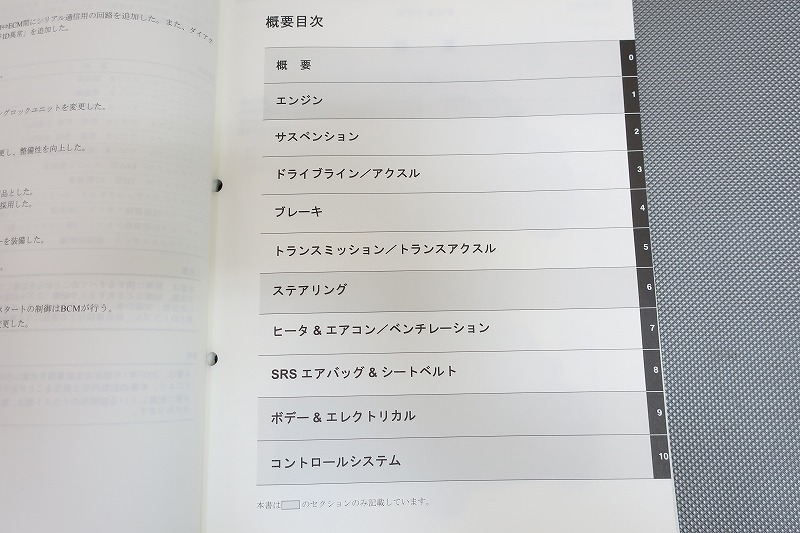 BCM間にシリアル通信用の回路を追加した。また、ダイアグ
ID異常」を追加した。
ングロックユニットを変更した。
更し、整備性を向上した。
品とした。
採用した。
ーを装備した。
スタートの制御はBCMが行う。
変更した。
概要目次
概 要 0
エンジン 1
サスペンション 2
ドライブライン／アクスル 3
ブレーキ 4
トランスミッション／トランスアクスル 5
ステアリング 6
ヒータ & エアコン／ベンチレーション 7
SRS エアバッグ & シートベルト 8
ボデー & エレクトリカル 9
コントロールシステム 10
本書は のセクションのみ記載しています。